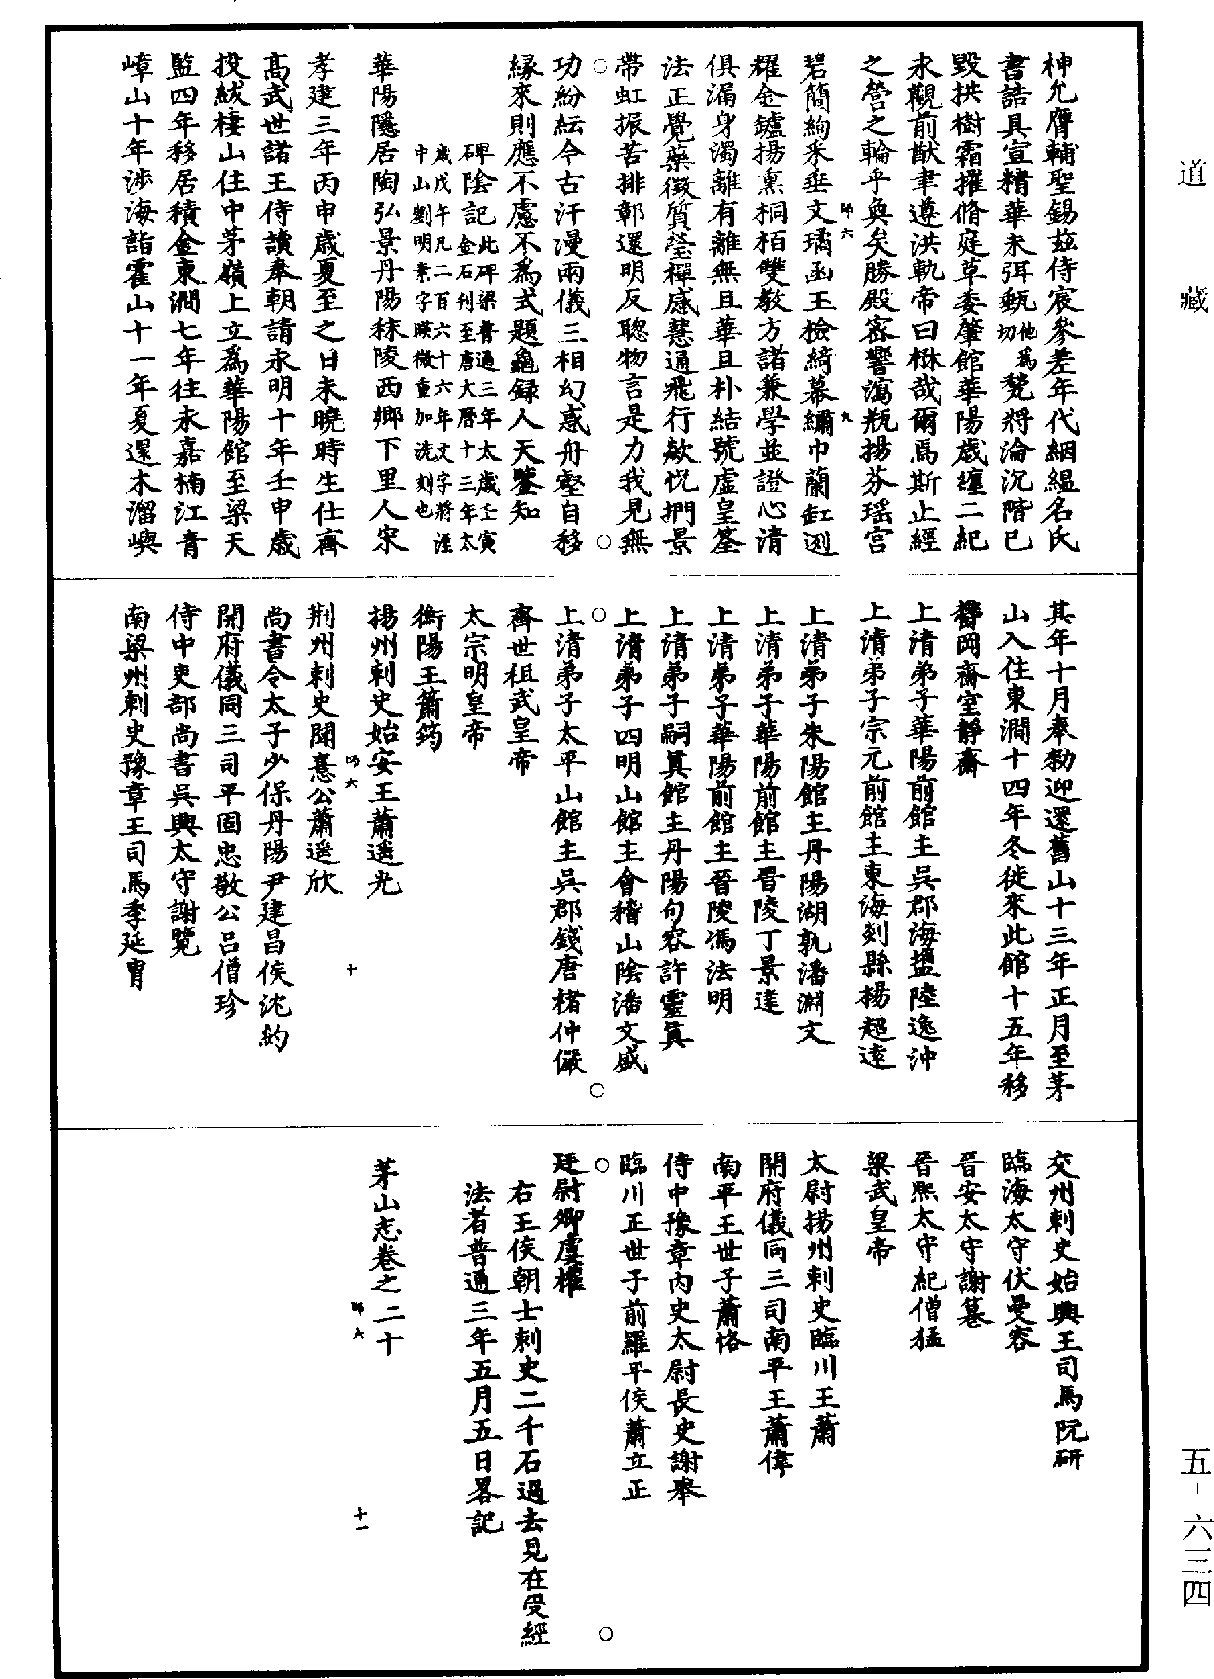 道藏
神允膺輔聖錫茲侍宸參差年代絪縕名氏
書誥具宣精華未弭甄切他為甃將淪沉階已
毀拱樹霜摧脩庭草委肇館華陽歲纏二紀
永觀前猷聿遵洪軌帝曰楙哉爾焉斯止經
之營之輪乎奐矣勝殿密響瀉瓶揚芬瑤宮
碧簡絢釆垂文璚函玉檢綺幕繡巾蘭缸迾
耀金鑪揚熏桐栢雙教方諸兼學並證心清
俱漏身濁離有離無且華且朴結號虛皇筌
法正覺藥徵質瑩禪感慧通飛行歘怳捫景
帶虹振苦排鄣還明反聰物言是力我見無
功紛紜今古汗漫兩儀三相幻惑舟壑自移
緣來則應不慮不為式題龜録人天鑒知
碑陰記此碑梁普通三年太歲壬寅
金石刊至唐大曆十三年太
歲戊午凡二百六十六年文字將湮
中山劉明素字暎微重加洗刻也
華陽隱居陶弘景丹陽秣陵西鄉下里人宋
孝建三年丙申歲夏至之日未曉時生仕齊
高武世諸王侍讀奉朝請永明十年壬申歲
投紱棲山住中茅嶺上立為華陽館至梁天
監四年移居積金東澗七年往永嘉楠江青
嶂山十年涉海詣霍山十一年夏還木溜嶼
其年十月奉勑迎還舊山十三年正月至茅
山入住東澗十四年冬徙來此館十五年移
鬱岡齋室靜齋
上清弟子華陽前館主吳郡海鹽陸逸沖
上清弟子宗元前館主東海剡縣楊超遠
上清弟子朱陽館主丹陽湖孰潘淵文
上清弟子華陽前館主晉陵丁景達
上清弟子華陽前館主晉陵馮法明
上清弟子嗣真館主丹陽句容許靈真
上清弟子四明山館主會稽山陰潘文盛
上清弟子太平山館主吳郡錢唐褚仲儼
齊世祖武皇帝
太宗明皇帝
衡陽王蕭鈞
揚州刺史始安王蕭遙光
荆州刺史聞憙公蕭遙欣
尚書令太子少保丹陽尹建昌侯沈約
開府儀同三司平固忠敬公呂僧珍
侍中吏部尚書吳興太守謝覽
南梁州刺史豫章王司馬季延胄
交州刺史始興王司馬阮研
臨海太守伏曼容
晉安太守謝篹
晉熙太守紀僧猛
梁武皇帝
太尉揚州刺史臨川王蕭
開府儀同三司南平王蕭偉
南平王世子蕭恪
侍中豫章內史太尉長史謝舉
臨川正世子前羅平侯蕭立正
廷尉卿虞權
右王侯朝士刺史二千石過去見在受經
法者普通三年五月五日畧記
茅山志卷之二十
五-六三四